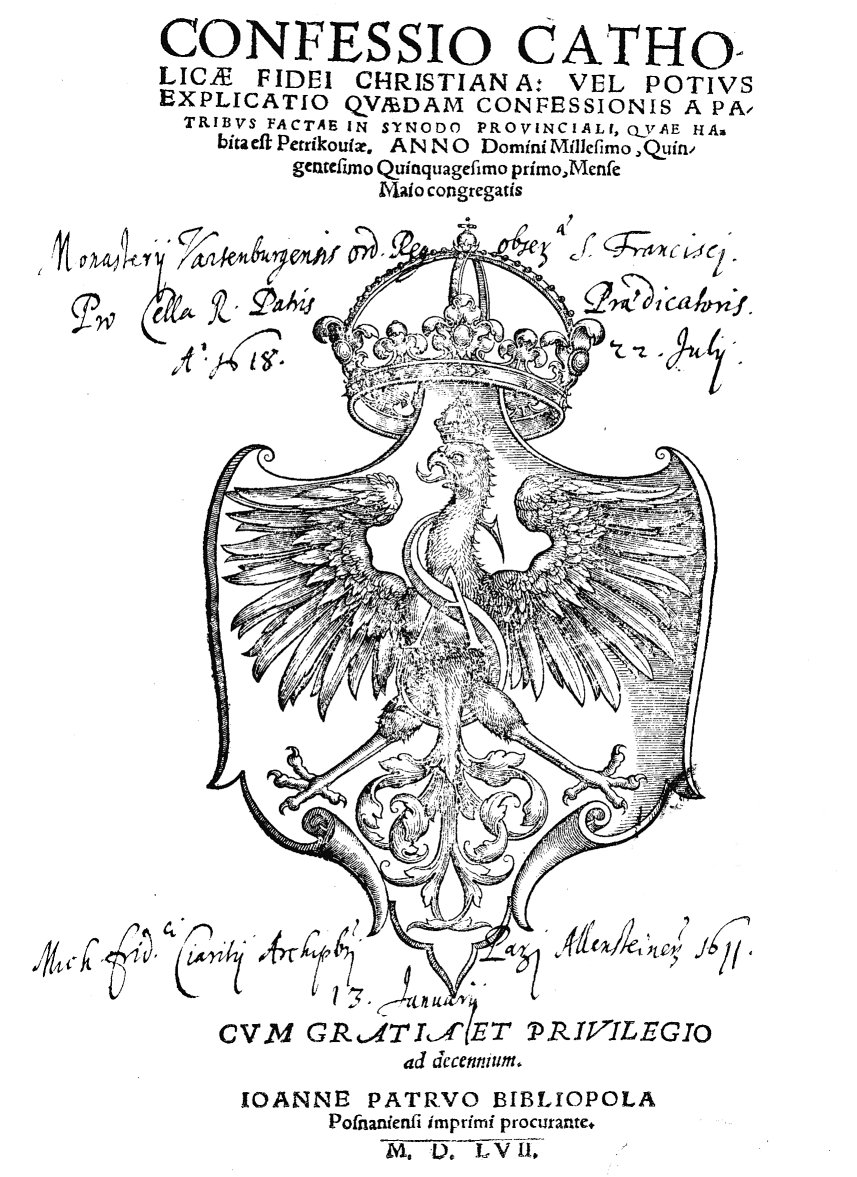 CONFESSIO CATHO-
LICÆ FIDEI CHRISTIANA: VEL POTIVS
EXPLICATIO QVÆDAM CONFESSIONIS A PA-
TRIBVS FACTAE IN SYNODO PROVINCIALI, QVAE HA-
bita eſt Petrikouiæ. ANNO Domini Milleſimo, Quin-
genteſimo Quinquageſimo primo, Menſe
Maio congregatis
Monasterij Vartenburgensis ord. Reg. obser. S. Francisci.
Pro Cella R. Patris Prædicatoris.
Aº. 1618. 22. Julij.
SA
Mich. frid. Archipbri Allensteinen 1611.
13. Januarij
CVM GRATIA ET PRIVILEGIO
ad decennium.
IOANNE PATRVO BIBLIOPOLA
Poſnanienſi imprimi procurante.
M. D. LVII.